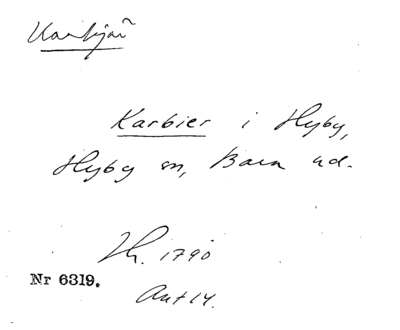 Karbier i Hyby,
Hyby sn, Bara hd.
Lh. 1790
Nr 6319.
Ant 14.